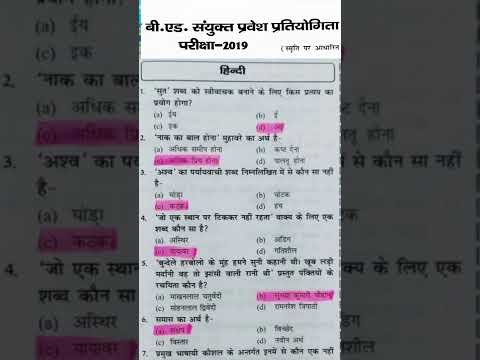 बी.एड. संयुक्त प्रवेश प्रतियोगिता
परीक्षा-2019 (स्मृति पर आधारित
हिन्दी
1. 'सुत' शब्द को स्त्रीवाचक बनाने के लिए किस प्रत्यय का
प्रयोग होगा?
(a) ईय (b) ई
(c) इक (d) आ
2. 'नाक का बाल होना' मुहावरे का अर्थ है-
(a) अधिक समीप होना (b) कष्ट देना
(c) अधिक प्रिय होना (d) पालतू होना
3. 'अश्व' का पर्यायवाची शब्द निम्नलिखित में से कौन सा नहीं
है-
(a) घोड़ा (b) घोटक
(c) कटक (d) हय
4. 'जो एक स्थान पर टिककर नहीं रहता' वाक्य के लिए एक
शब्द कौन सा है?
(a) अस्थिर (b) अडिग
(c) यायावर (d) गतिशील
5. 'बुन्देले हरबोलों के मुंह हमने सुनी कहानी थी। खूब लड़ी
मर्दानी वह तो झांसी वाली रानी थी' प्रस्तुत पंक्तियों के
रचयिता कौन है?
(a) माखनलाल चतुर्वेदी (b) सुभद्रा कुमारी चौहान
(c) सोहनलाल द्विवेदी (d) रामनरेश त्रिपाठी
6. समास का अर्थ है-
(a) संक्षेप (b) विच्छेद
(c) विस्तार (d) नवीन अर्थ
7. प्रमुख भाषायी कौशल के अन्तर्गत इनमें से कौन एक नहीं